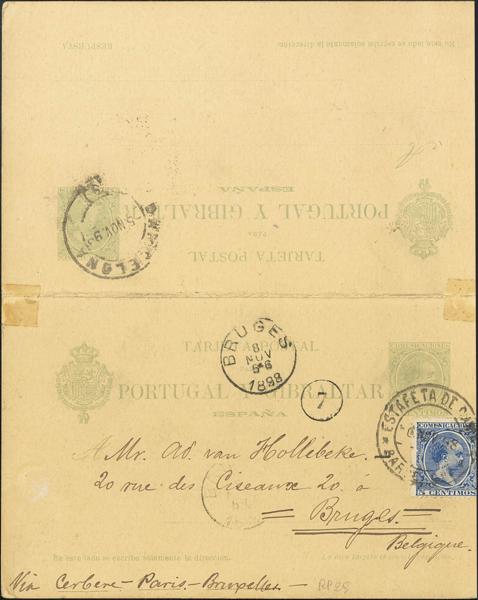 RESPUESTA
En este lado se escribe solamente la dirección.
ESPAÑA
PORTUGAL Y GIBRALTAR
PARA
TARJETA POSTAL
BARCELONA
5 NOV 98
TARJETA POSTAL
PORTUGAL Y GIBRALTAR
ESPAÑA
BRUGES
8
NOV
5-6
1898
7
ESTAFETA DE
COMUNICACIONES
5 CENTIMOS
A Mr. Ad. van Hollebeke
20 rue des Ciseaux 20. à
= Bruges. =
Belgique.
En este lado se escribe solamente la dirección.
Via Cerbere - Paris - Bruxelles -